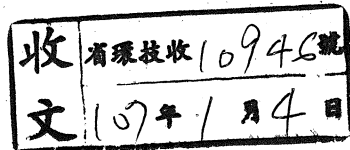 收文
省環技收10946號
107年1月4日